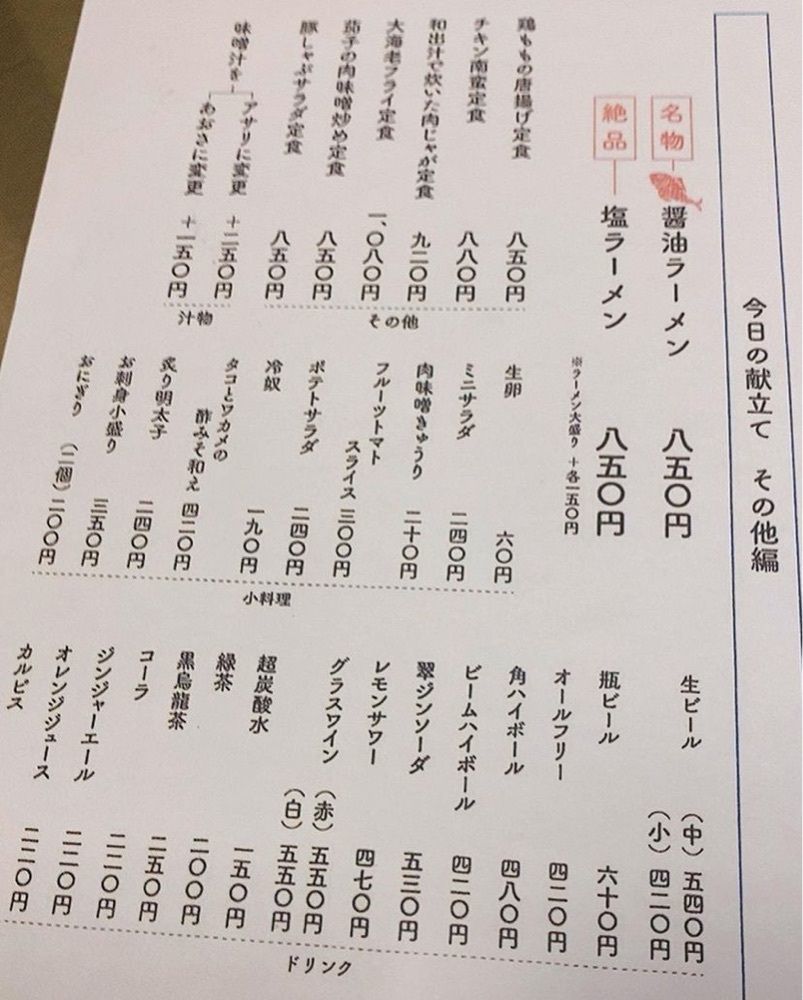 今日の献立て その他編
名物 醤油ラーメン 八五〇円
絶品 塩ラーメン 八五〇円
※ラーメン大盛り +各一五〇円
鶏ももの唐揚げ定食 八五〇円
チキン南蛮定食 八八〇円
和出汁で炊いた肉じゃが定食 九二〇円
大海老フライ定食 一、〇八〇円
茄子の肉味噌炒め定食 八五〇円
豚しゃぶサラダ定食 八五〇円
その他
味噌汁を
アサリに変更 +二五〇円
あおさに変更 +一五〇円
汁物
生卵 六〇円
ミニサラダ 二四〇円
肉味噌きゅうり 二十〇円
フルーツトマト
スライス 三〇〇円
ポテトサラダ 二四〇円
冷奴 一九〇円
タコとワカメの
酢みそ和え 四二〇円
炙り明太子 二四〇円
お刺身小盛り 三五〇円
おにぎり (二個) 二〇〇円
小料理
生ビール (中) 五四〇円
(小) 四二〇円
瓶ビール 六十〇円
オールフリー 四二〇円
角ハイボール 四八〇円
ビームハイボール 四二〇円
翠ジンソーダ 五三〇円
レモンサワー 四七〇円
グラスワイン (赤) 五五〇円
(白) 五五〇円
超炭酸水 一五〇円
緑茶 二〇〇円
黒烏龍茶 二五〇円
コーラ 二二〇円
ジンジャーエール 二二〇円
オレンジジュース 二二〇円
カルピス
ドリンク